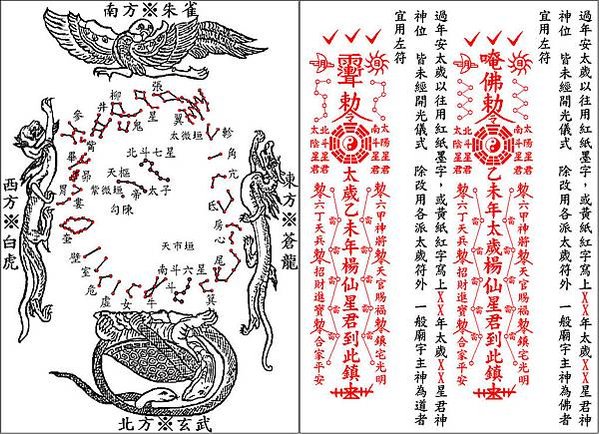 南方※朱雀
東方※蒼龍
西方※白虎
北方※玄武
張
柳
星
井
鬼
翼
參
太微垣
軫
觜
北斗七星
角
畢
天樞
亢
昴
紫微垣
帝
太子
胃
勾陳
氐
婁
房
奎
心
天市垣
尾
壁
室
南斗六星
箕
危
虛
女
牛
過年安太歲以往用紅紙墨字，或黃紙紅字寫上XX年太歲XX星君神
神位 皆未經開光儀式 除改用各派太歲符外 一般廟字主神為佛者
宜用左符
唵佛勅令
太陽星君
南斗星君
北斗星君
太陰星君
勅六甲神將勅天官賜福勅鎮宅光明
乙未年太歲楊仙星君到此鎮
勅六丁天兵勅招財進寶勅合家平安
過年安太歲以往用紅紙墨字，或黃紙紅字寫上XX年太歲XX星君神
神位 皆未經開光儀式 除改用各派太歲符外 一般廟字主神為道者
宜用左符
勅令
太陽星君
南斗星君
北斗星君
太陰星君
勅六甲神將勅天官賜福勅鎮宅光明
太歲乙未年楊仙星君到此鎮
勅六丁天兵勅招財進寶勅合家平安